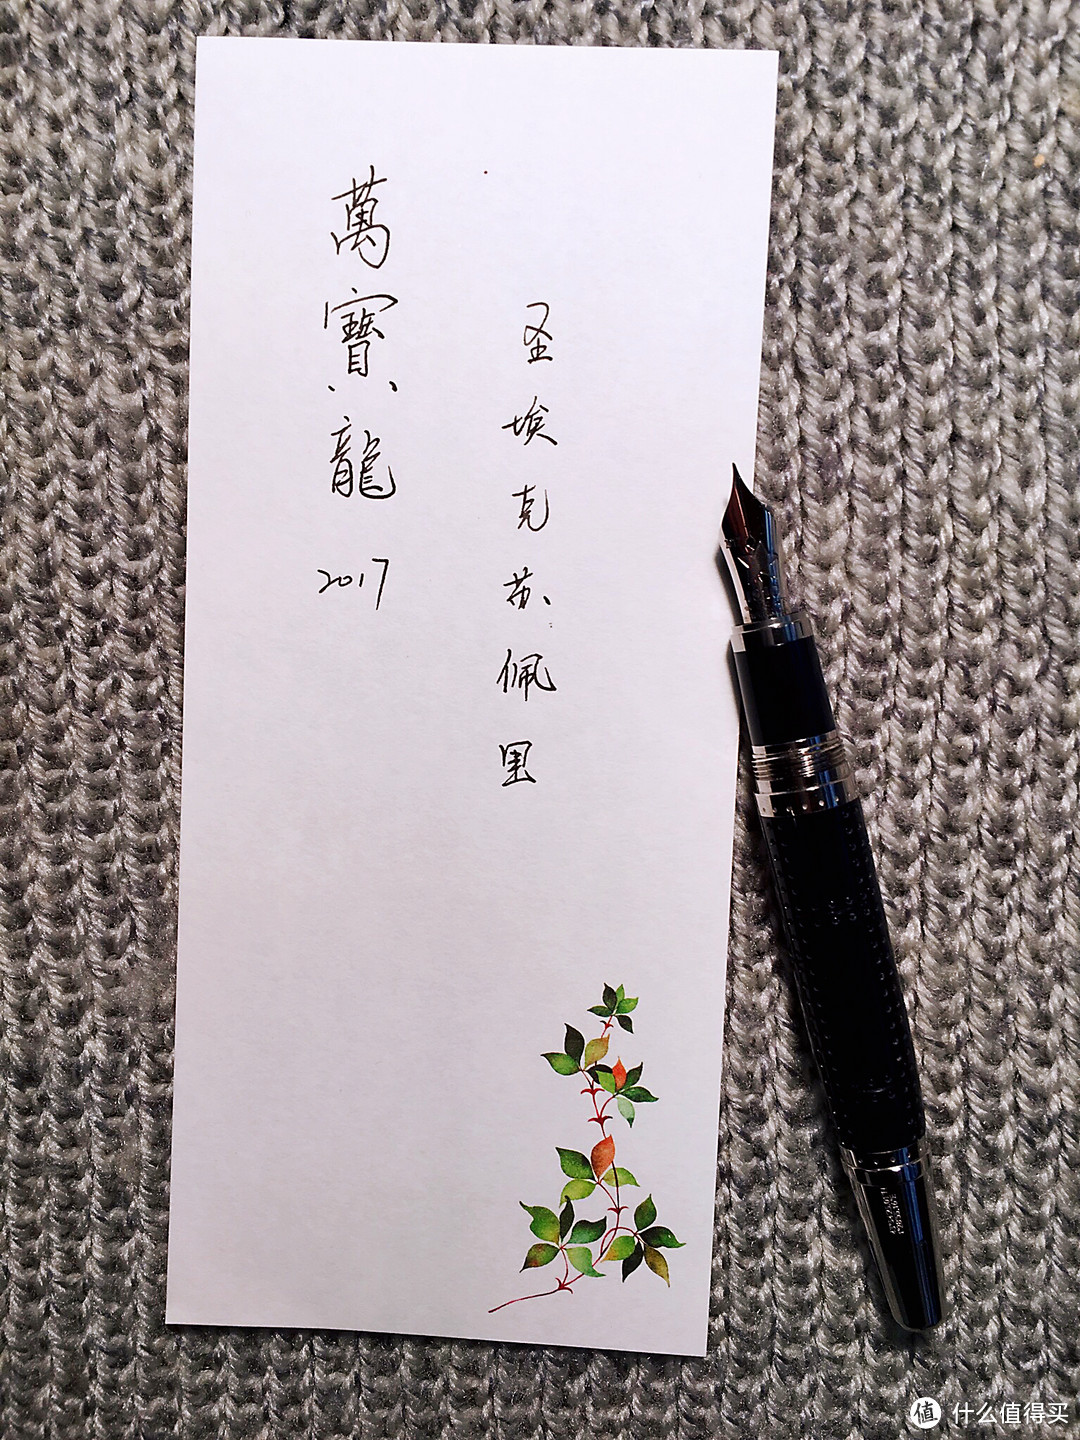 萬寶龍 2017
圣埃克苏佩里
什么值得买